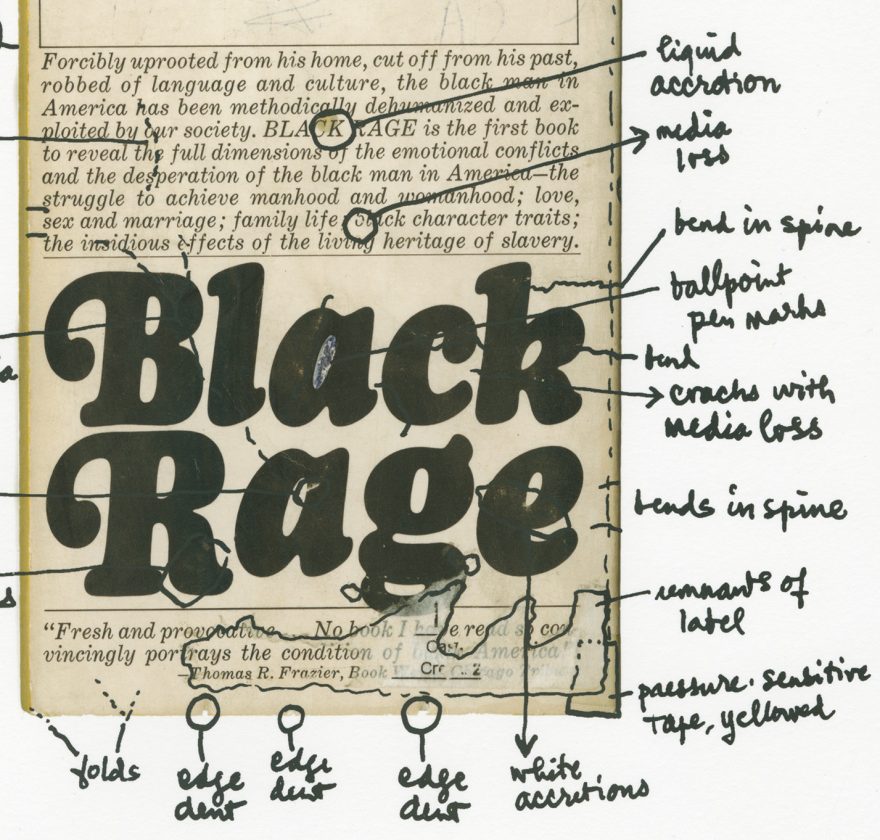 Forcibly uprooted from his home, cut off from his past,
robbed of language and culture, the black man in
America has been methodically dehumanized and ex-
ploited by our society. BLACK RAGE is the first book
to reveal the full dimensions of the emotional conflicts
and the desperation of the black man in America—the
struggle to achieve manhood and womanhood; love,
sex and marriage; family life; black character traits;
the insidious effects of the living heritage of slavery.
Black
Rage
“Fresh and provocative . . . No book I have read so con-
vincingly portrays the condition of black America”
—Thomas R. Frazier, Book
liquid
accretion
media
loss
bend in spine
ballpoint
pen marks
bend
cracks with
media loss
bends in spine
remnants of
label
pressure-sensitive
tape, yellowed
folds
edge
dent
edge
dent
edge
dent
white
accretions
a
s